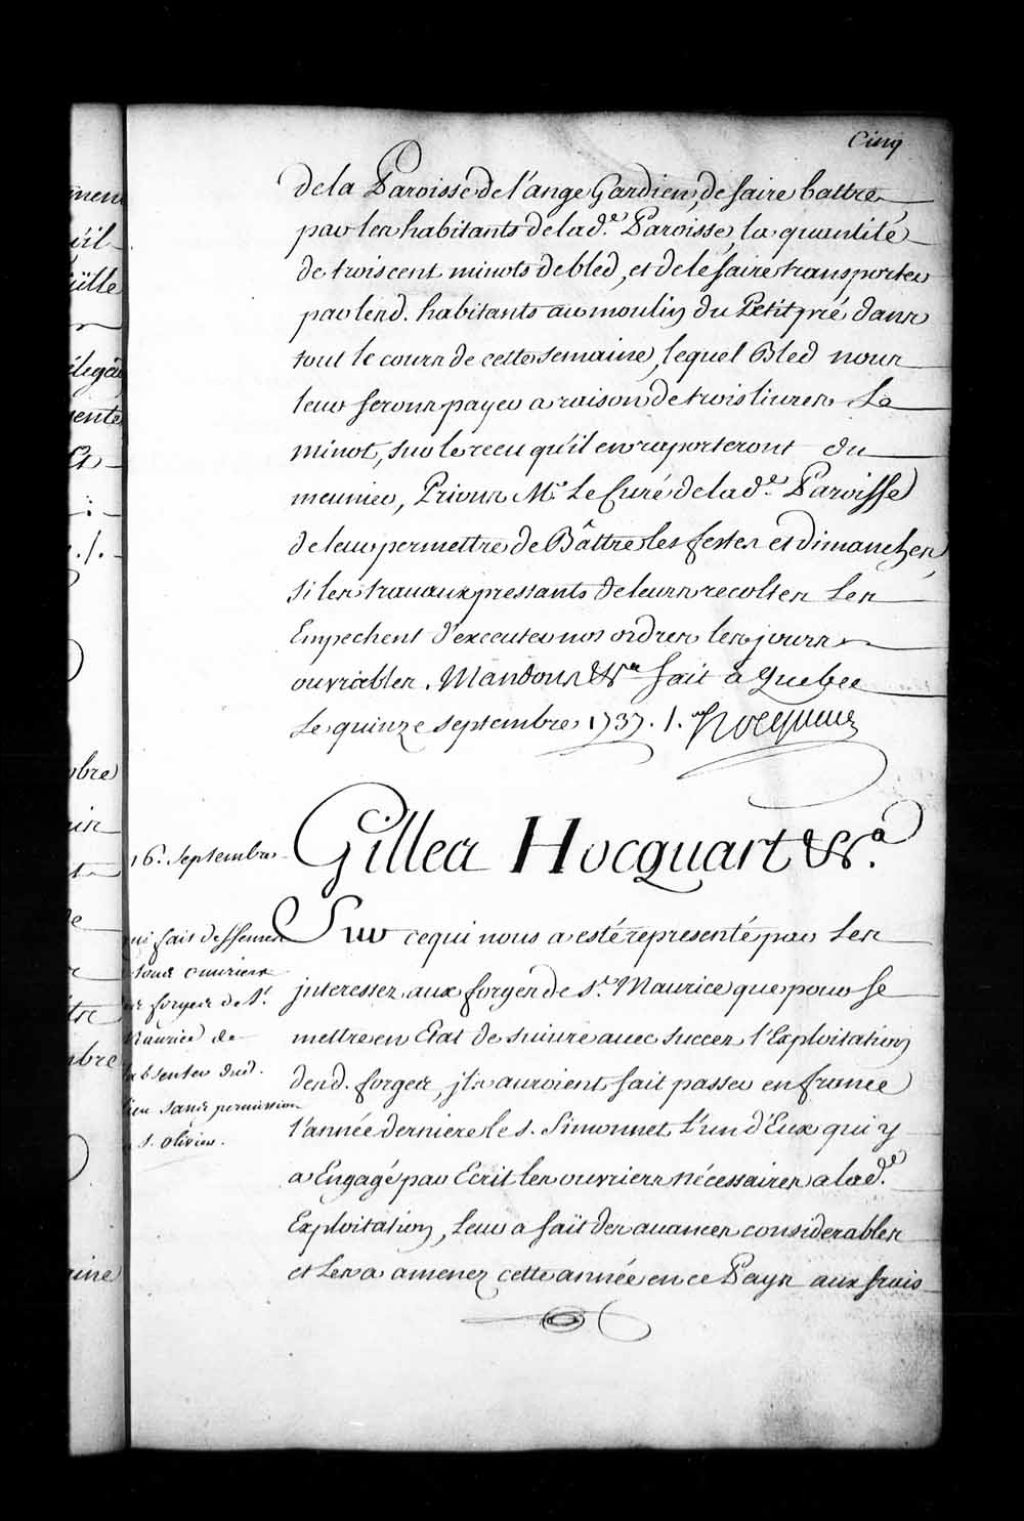 Cinq
de la Paroisse de l'ange Gardien, de faire battre
par les habitants de lad.e Paroisse, la quantité
de trois cent minots de bled, et de le faire transporter
par lesd. habitants au moulin du Petit pré dans
tout le cours de cette semaine, lequel Bled nous
leur ferons payer a raison de trois livres Le
minot, sur le recu qu'il en raporteront du
meunier, Prions Mr. Le Curé de lad.e Paroisse
de leur permettre de Bâttre les festes et dimanches,
si les travaux pressants de leurs recoltes Les
Empechent d'executer nos ordres les jours
ouvrables. Mandons &ca fait a Quebec
Le quinze septembre 1737. /. Hocquart
16. septembre
Gilles Hocquart &c.a
Sur ce qui nous a esté representé par Les
jnteressez aux forges de St. Maurice que pour se
mettre en Etat de suivre avec succes l'Exploitation
desd. forges, jls auroient fait passer en france
l'année derniere le s. Simonnet L'un d'Eux qui y
a Engagé par Ecrit les ouvriers nécessaires a lad.e
Exploitation, Leur a fait des avances considerables
et Les a amenez cette année en ce Pays aux frais
qui fait deffenses
tous ouvriers
forges de St.
Maurice de
absenter dud.
lieu sans permission
s. olivier.
ment
uil
uille
ente
obre
tre
mbre
rine